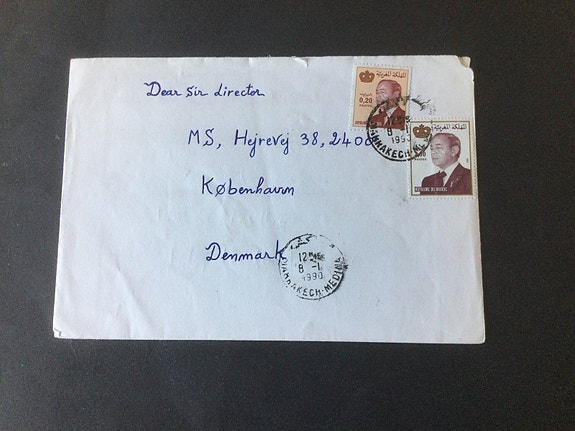 Dear Sir director
MS, Hejrevej 38, 2400
København
Denmark
المملكة المغربية
0,20
المملكة المغربية
ROYAUME DU MAROC
8 -1
1990
MARRAKECH-MEDINA
12
8 -1
1990
MARRAKECH-MEDINA